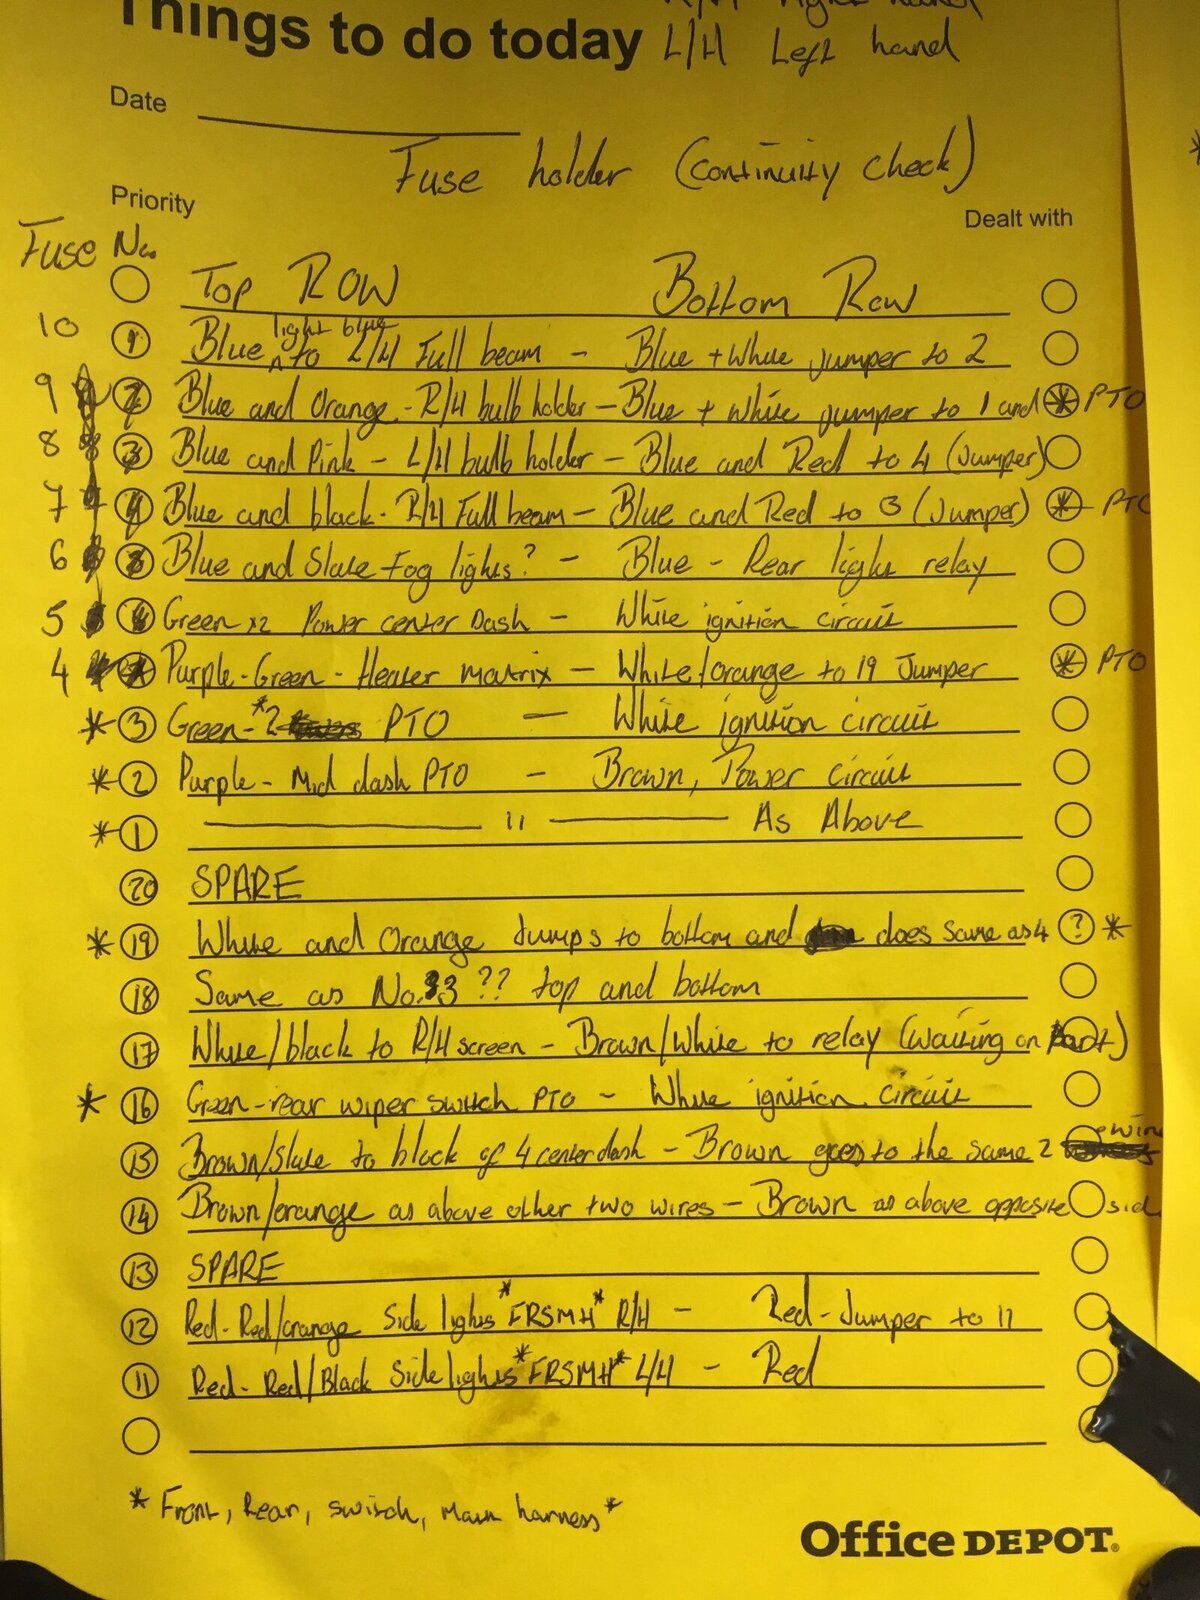 Things to do today L/H Left hand
Date
Fuse holder (continuity check)
Priority
Dealt with
Fuse No.
Top ROW Bottom Row
10 Blue light blue to L/H Full beam - Blue + White jumper to 2
9 2 Blue and Orange - R/H bulb holder - Blue + white jumper to 1 and * PTO
8 3 Blue and Pink - L/H bulb holder - Blue and Red to 4 (Jumper)
7 4 Blue and black - R/H Full beam - Blue and Red to 3 (Jumper) * PTO
6 Blue and Slate - Fog lights? - Blue - Rear light relay
5 Green x2 Power center Dash - White ignition circuit
4 Purple-Green - Heater matrix - White/orange to 19 Jumper * PTO
* 3 Green - *2 PTO - White ignition circuit
* 2 Purple - Mid dash PTO - Brown, Power circuit
* 1 " As Above
20 SPARE
* 19 White and Orange Jumps to bottom and does same as 4 ? *
18 Same as No. 3 ?? top and bottom
17 White/black to R/H screen - Brown/White to relay (waiting on part)
* 16 Green - rear wiper switch PTO - White ignition circuit
15 Brown/Slate to block of 4 center dash - Brown goes to the same 2
14 Brown/orange as above other two wires - Brown as above opposite side
13 SPARE
12 Red - Red/orange Side lights *FRSMH* R/H - Red - Jumper to 11
11 Red - Red/Black Side lights *FRSMH* L/H - Red
* Front, Rear, switch, main harness *
Office DEPOT.